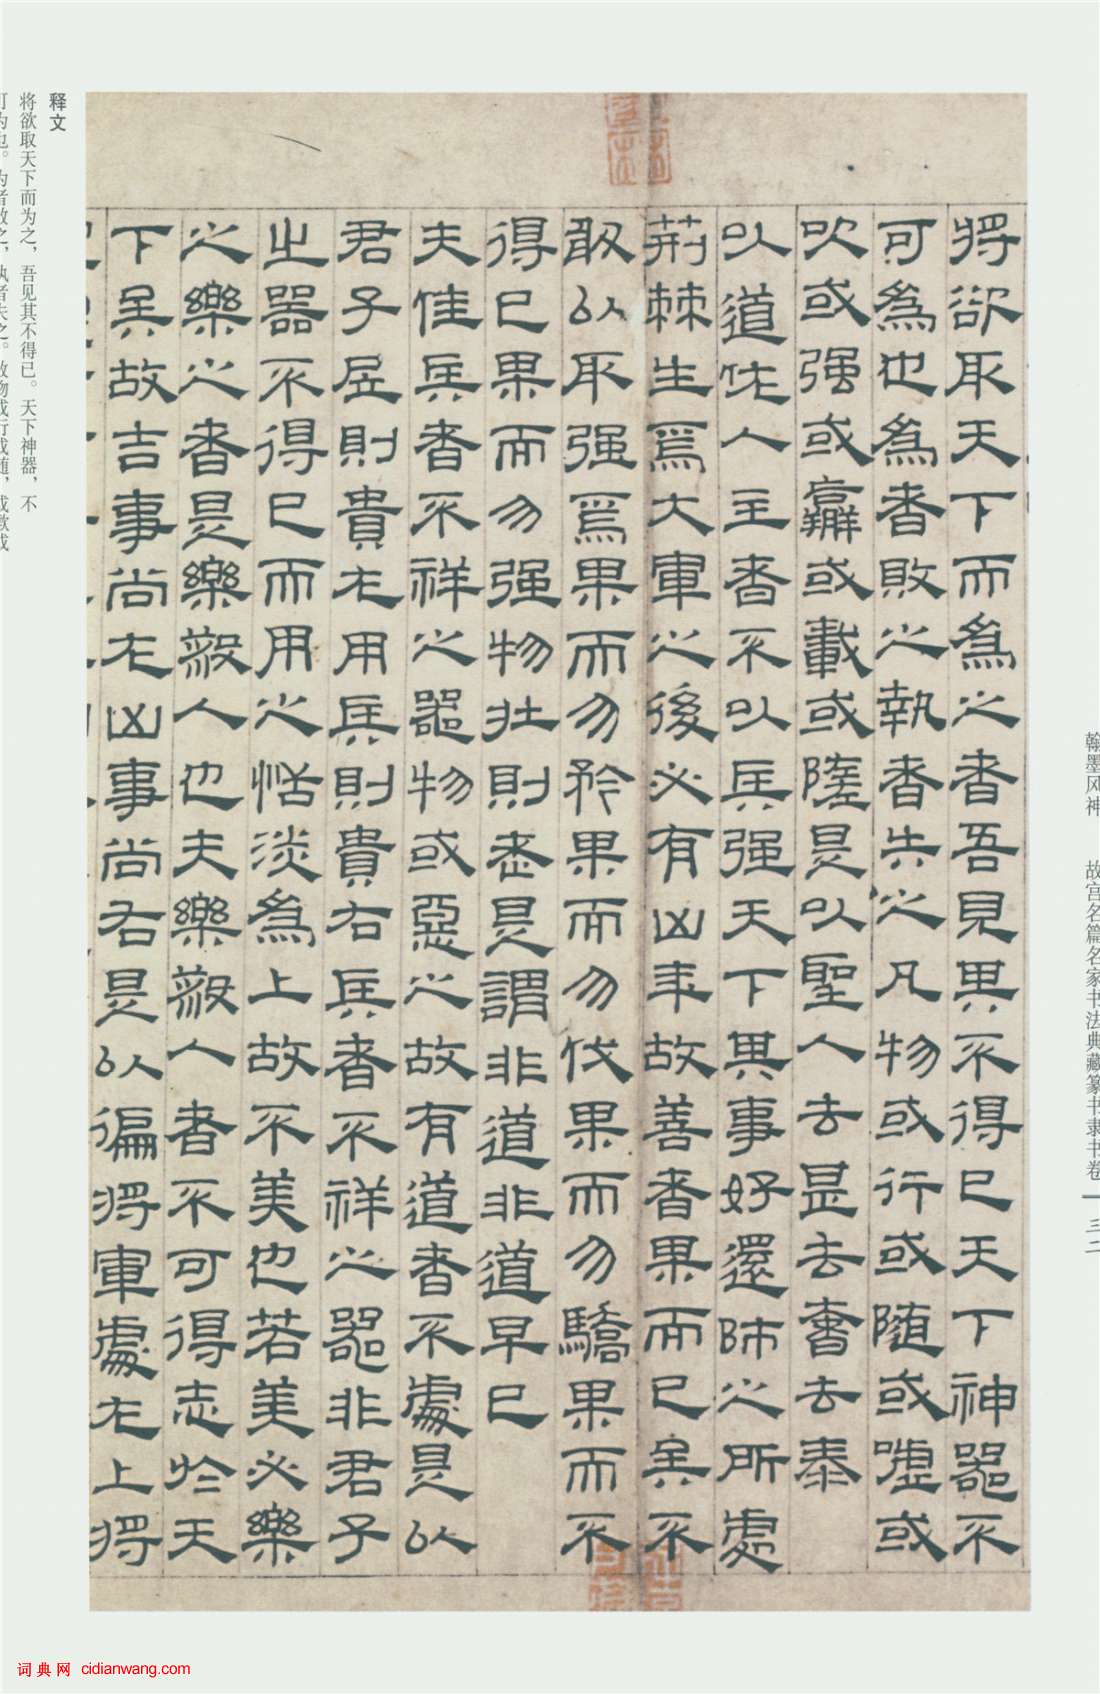 翰墨风神 故宫名篇名家书法典藏篆书隶书卷 三二
將欲取天下而為之者吾見其不得已天下神器不
可為也為者敗之執者失之凡物或行或随或嘘或
吹或强或羸或載或隳是以聖人去甚去奢去泰
以道佐人主者不以兵强天下其事好還師之所處
荆棘生焉大軍之後必有凶年故善者果而已矣不
敢以取强焉果而勿矜果而勿伐果而勿驕果而不
得已果而勿强物壯則老是謂非道非道早已
夫佳兵者不祥之器物或惡之故有道者不處是以
君子居則貴左用兵則貴右兵者不祥之器非君子
之器不得已而用之恬淡為上故不美也若美必樂
之樂之者是樂殺人也夫樂殺人者不可得志於天
下矣故吉事尚左凶事尚右是以偏將軍處左上將
释文
将欲取天下而为之，吾见其不得已。天下神器，不
可为也。为者败之，执者失之。故物或行或随，或歔或
词典网 cidianwang.com